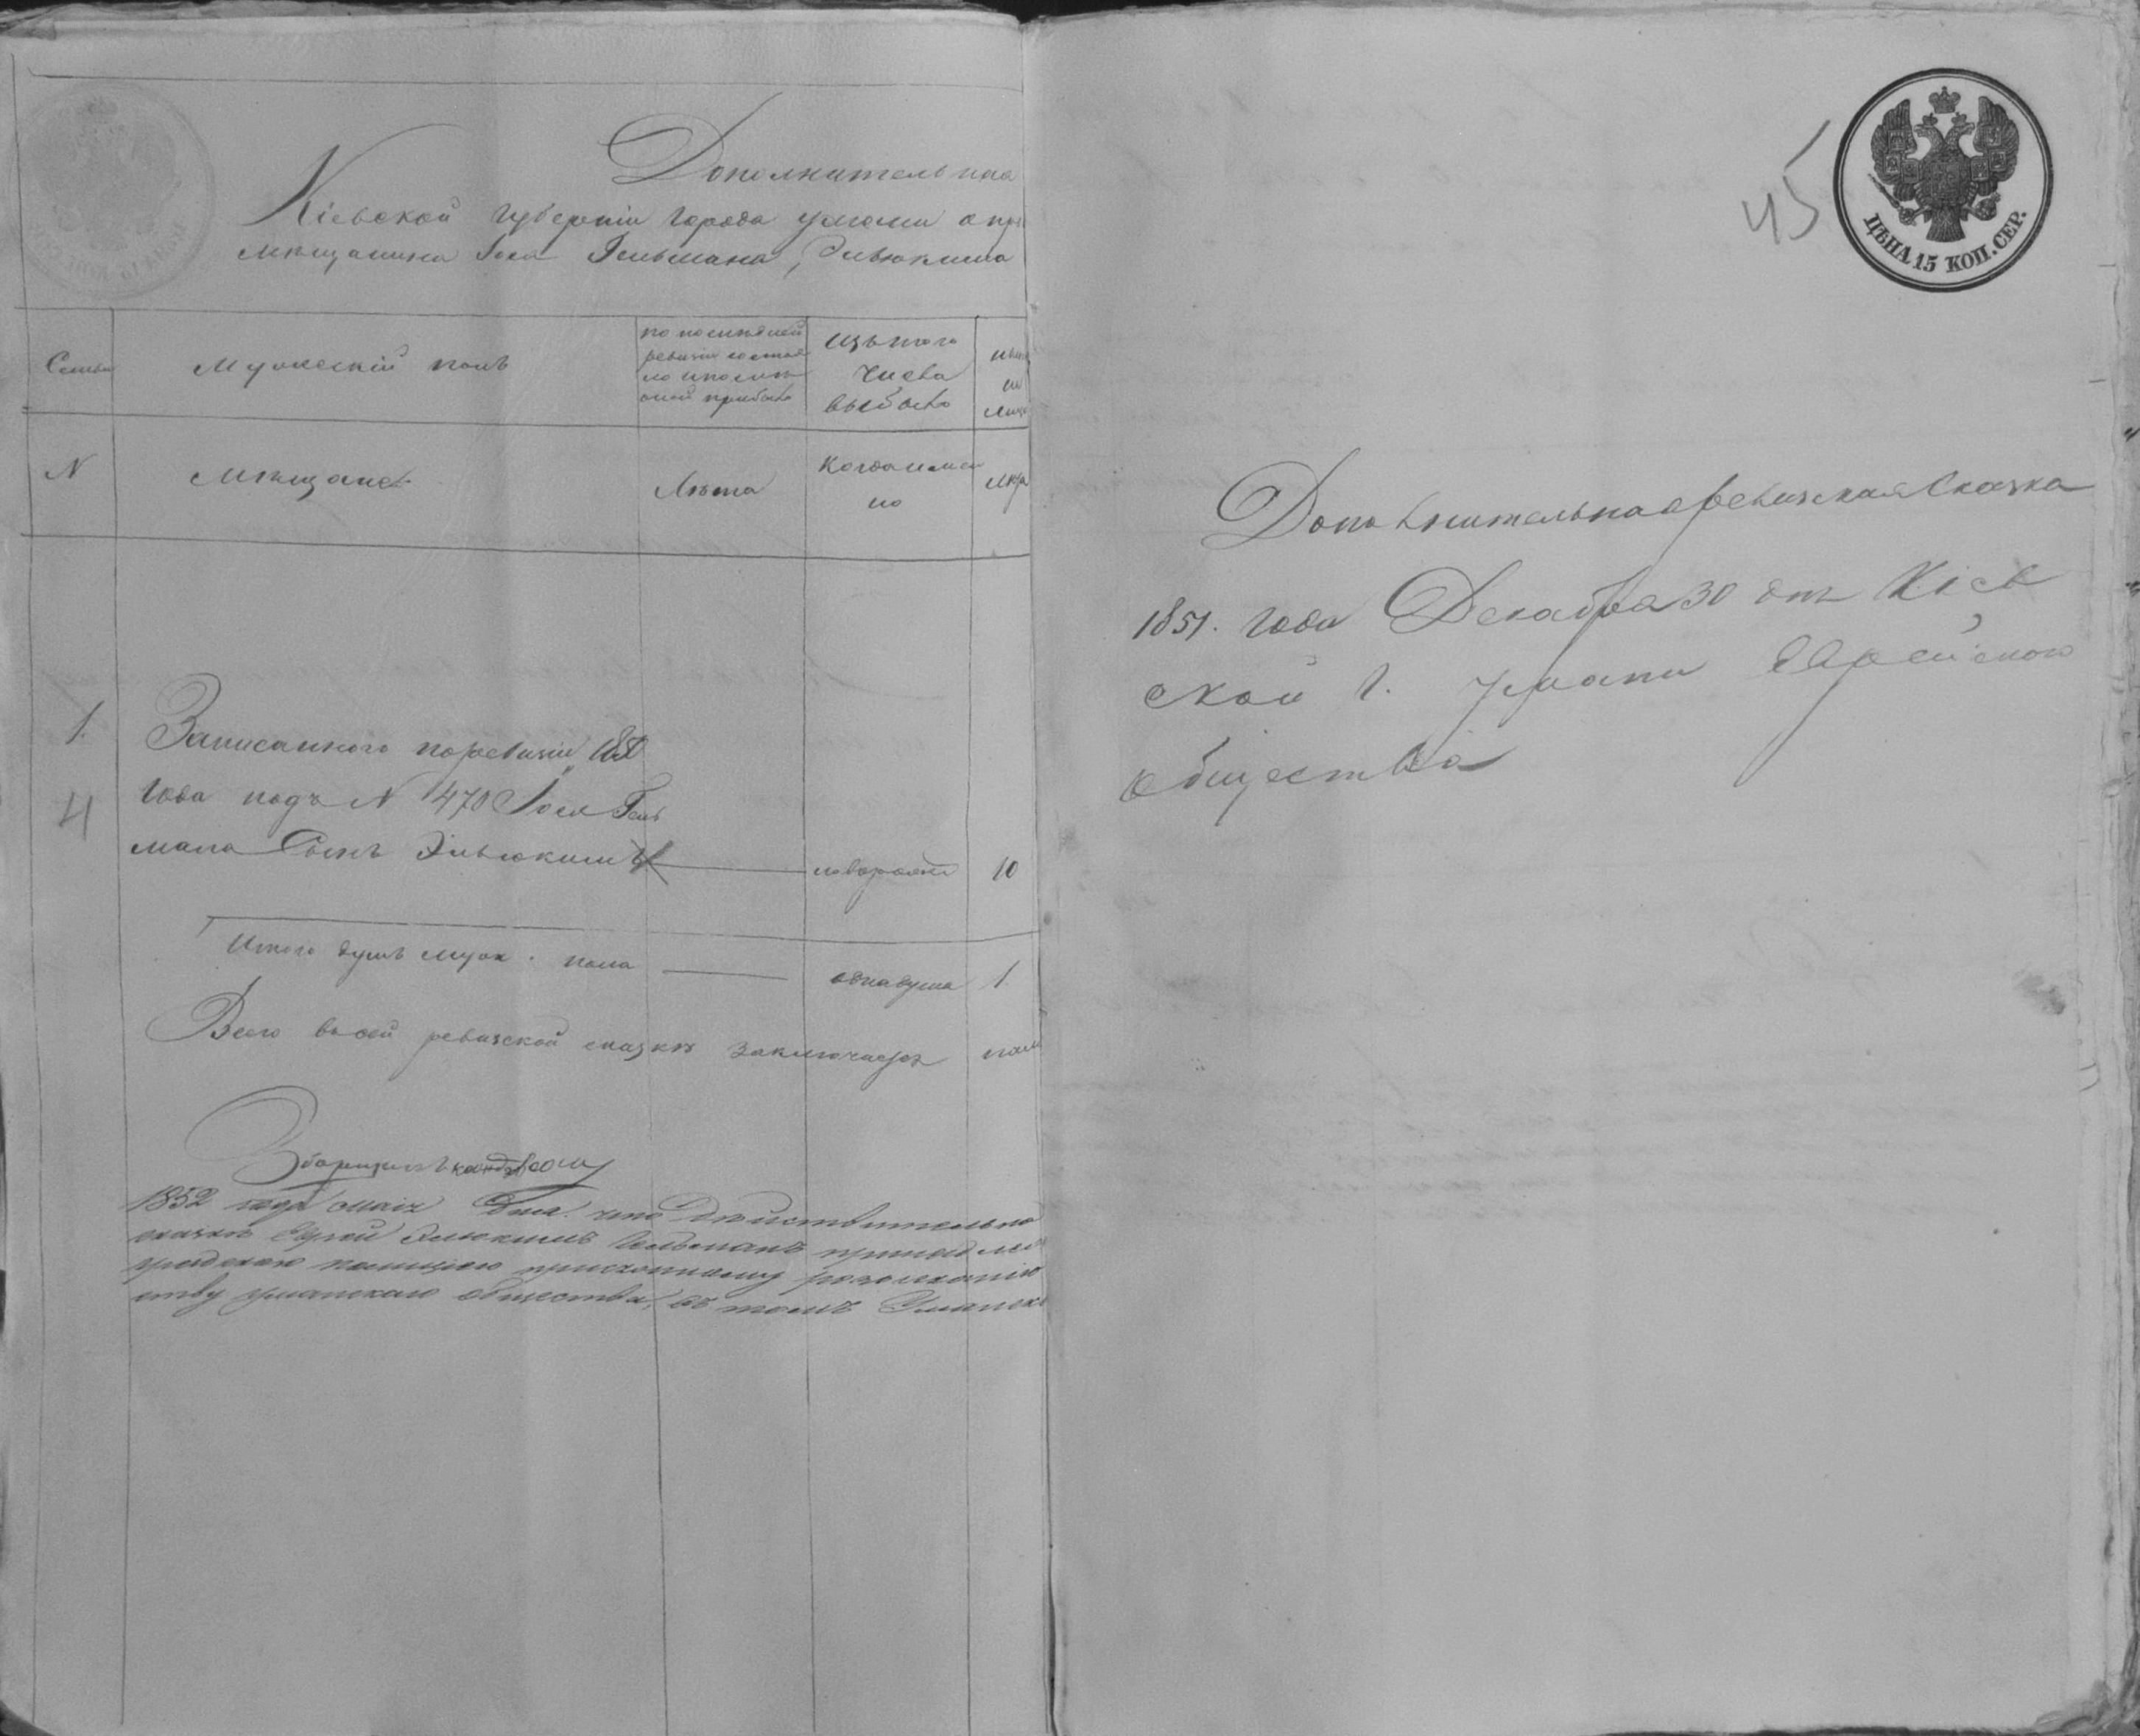 Дополнительная
Кіевской губерніи города умани о про
мещанина Іося Гельмана, Эльюкима
Семьи
Мужескій полъ
по последней
ревизіи состоя
ло и после
оной прибыло
изъ того
числа
выбыло
N
мещане
Лѣта
когда имен
но
1.
4
Записанного по ревизіи 1850
года подъ N 470 Іося Гель
мана Сынъ Эльюкимъ
10
Итого душъ муж. пола
одна душа
1
Всего въ сей ревизской сказкѣ заключается
1852 года маія дня. что Действительно
сказкѣ Еврей Эльюкимъ Гельманъ
ству уманскаго общества, въ томъ Уманск
45
ЦѢНА 15 КОП. СЕР.
Дополнительная ревизская Сказка
1851. года Декабря 30 дня Кіев
ской г. Умани Еврейского
общества